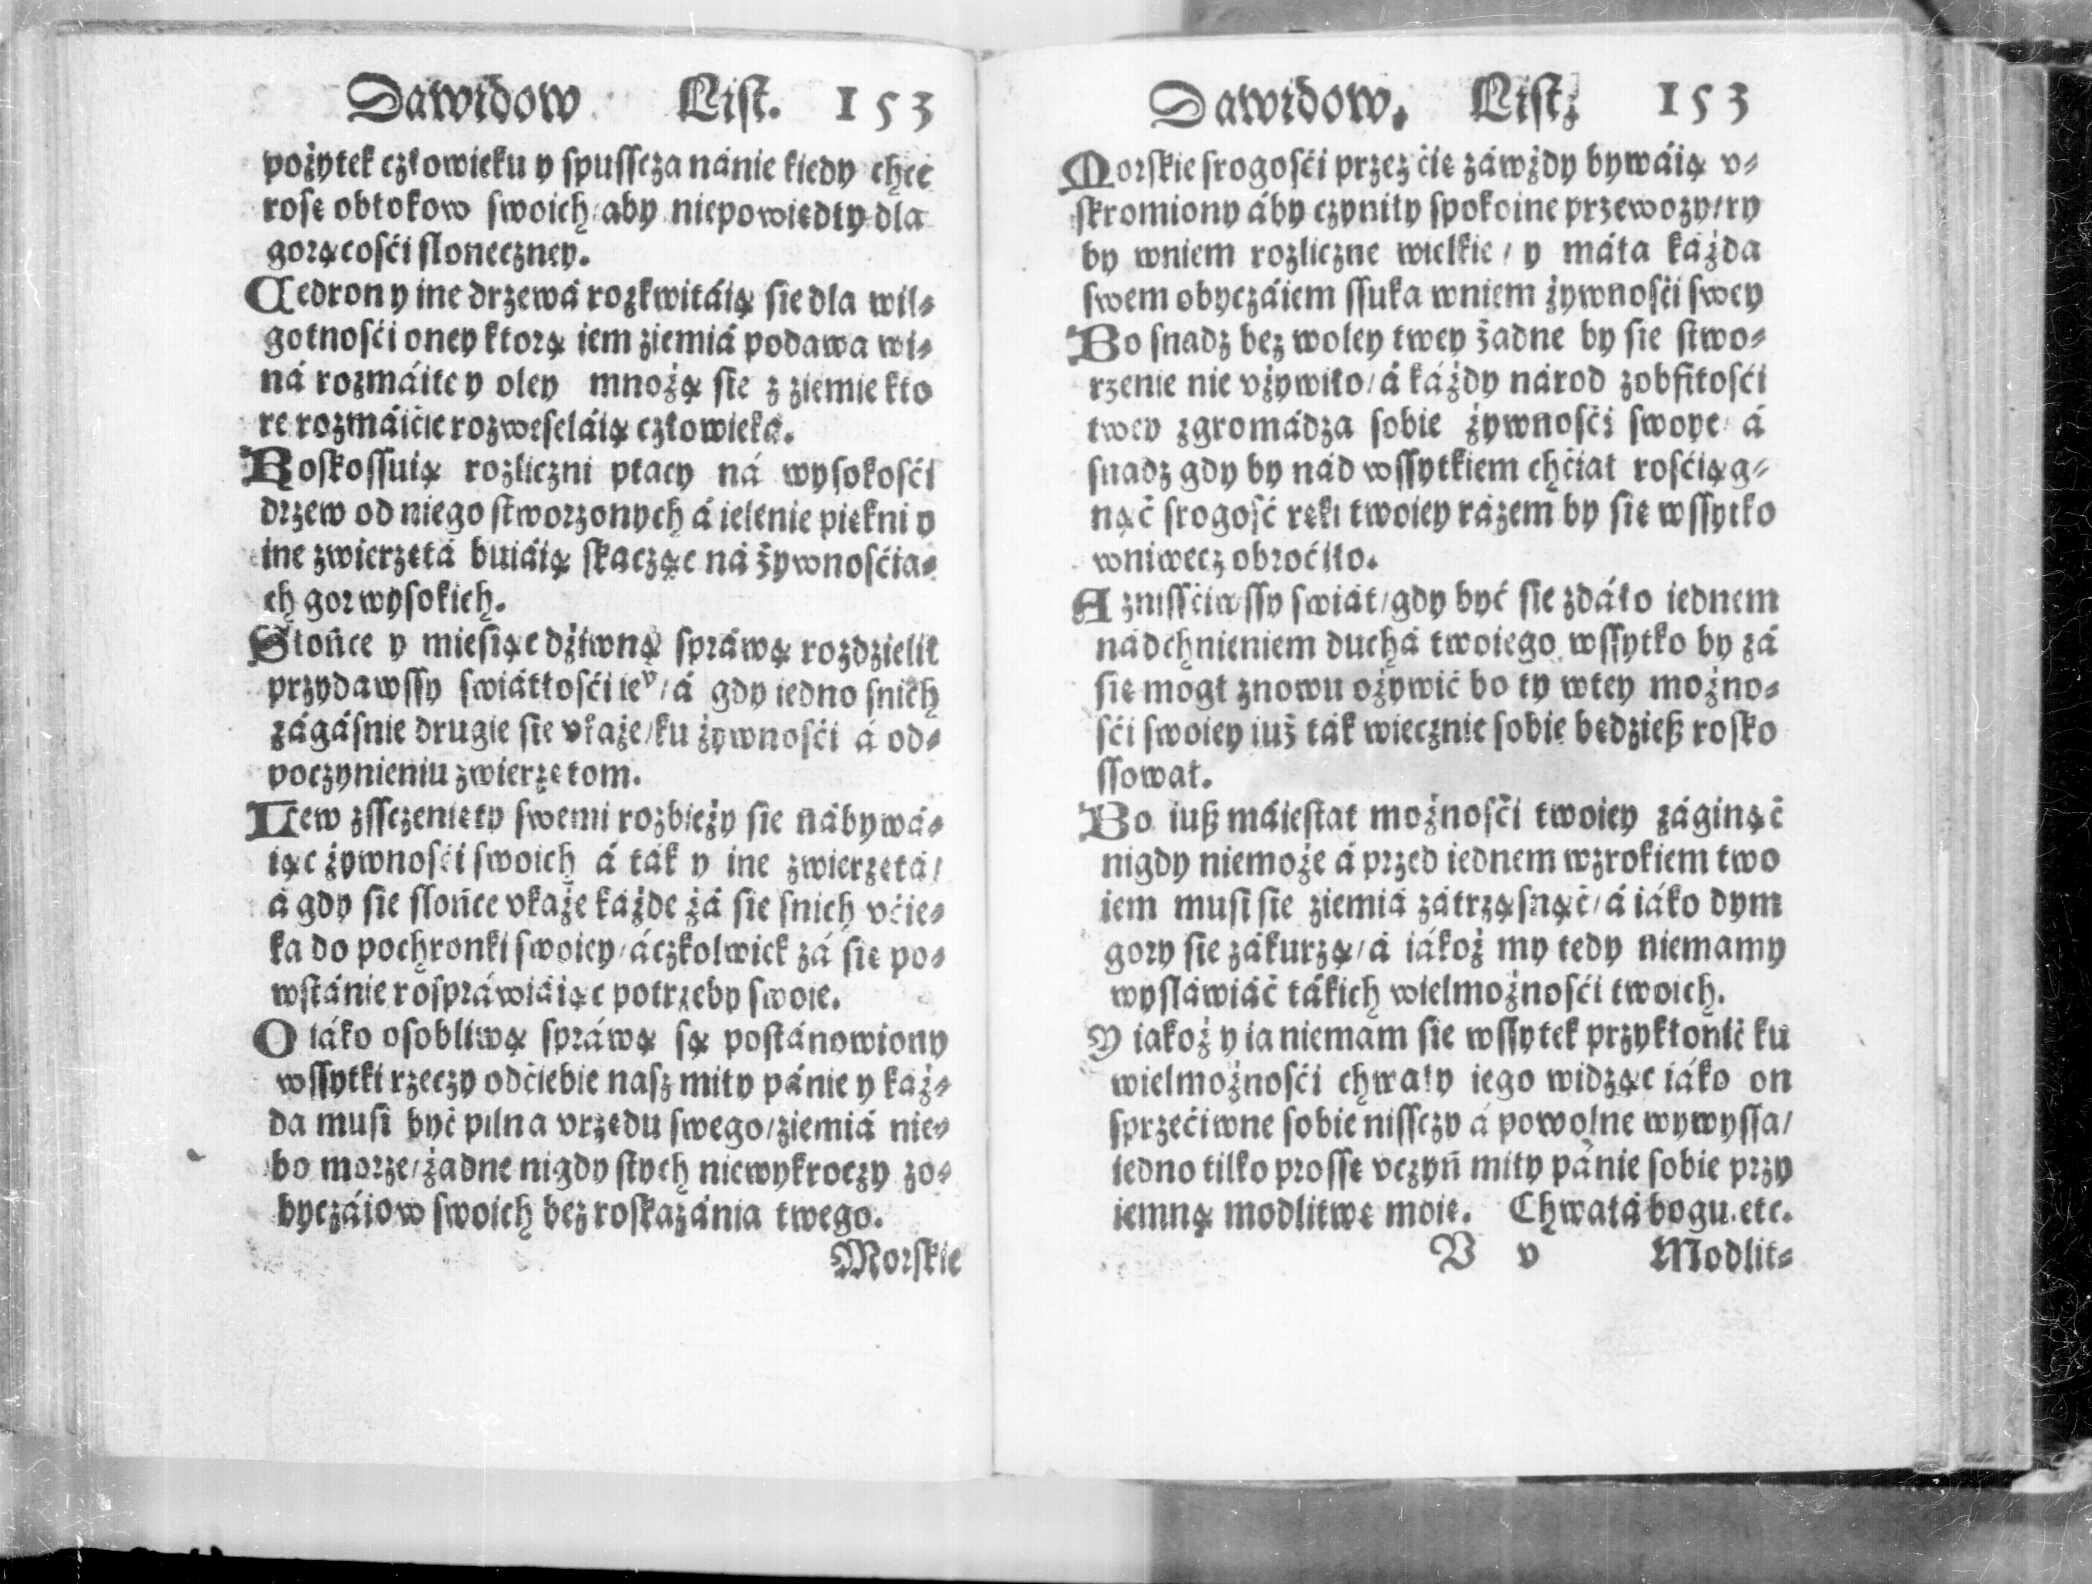 Dawidow List. 153
pożytek człowieku y spusscza nánie kiedy chce
rosę obłokow swoich/aby niepowiędły dla
gorącosći słoneczney.
Cedron y ine drzewá rozkwitáią sie dla wil⸗
gotnosći oney ktorą iem ziemiá podawa wi⸗
ná rozmáite y oley mnożą się z ziemie kto
re rozmáićie rozweseláią człowieká.
Roskossuią rozliczni ptacy ná wysokosći
drzew od niego stworzonych á ielenie piękni y
ine zwierzętá buiáią skacząc ná żywnosćia⸗
ch gor wysokich.
Słońce y miesiąc dżiwną spráwą rozdzielił
przydawssy swiátłosći ieᵛ/á gdy iedno snich
zágásnie drugie się vkaże/ku żywnosći á od⸗
poczynieniu zwierzętom.
Lew zssczenięty swemi rozbieży sie nábywá⸗
iąc żywnosći swoich á ták y ine zwierzętá/
á gdy sie słońce vkaże káżde żá sie snich vćie⸗
ka do pochronki swoiey/áczkolwiek zá się po⸗
wstánie rospráwiáiąc potrzeby swoie.
O iáko osobliwą spráwą są postánowiony
wssytki rzeczy odćiebie nasz miły pánie y każ⸗
da musi być pilna vrzędu swego/ziemiá nie⸗
bo morze/żadne nigdy stych niewykroczy zo⸗
byczáiow swoich bez roskazánia twego.
Morskie
Dawidow, List, 153
Morskie srogosći przez ćię záwżdy bywáią v⸗
skromiony áby czyniły spokoine przewozy/ry
by wniem rozliczne wielkie/y máła káżda
swem obyczáiem ssuka wniem żywnosći swey
Bo snadz bez woley twey żadne by sie stwo⸗
rzenie nie vżywiło/á káżdy národ zobfitosći
twey zgromádza sobie żywnosći swoye/á
snadz gdy by nád wssytkiem chćiał rosćiąg⸗
nąć srogość ręki twoiey rázem by się wssytko
wniwecz obroćiło.
A znissćiwssy swiát/gdy być sie zdáło iednem
nádchnieniem duchá twoiego wssytko by zá
się mogł znowu ożywić bo ty wtey możno⸗
sći swoiey iuż ták wiecznie sobie będzieß rosko
ssował.
Bo iuß máiestat możnosći twoiey záginąć
nigdy niemoże á przed iednem wzrokiem two
iem musi sie ziemiá zátrząsnąć/á iáko dym
gory sie zákurzą/á iákoż my tedy niemamy
wysláwiáć tákich wielmożnosći twoich.
Y iakoż y ia niemam sie wssytek przykłonić ku
wielmożnosći chwały iego widząc iáko on
sprzećiwne sobie nissczy á powolne wywyssa/
iedno tilko prossę vczyń miły pánie sobie przy
iemną modlitwę moię. Chwałá bogu.etc.
V v Modlit⸗